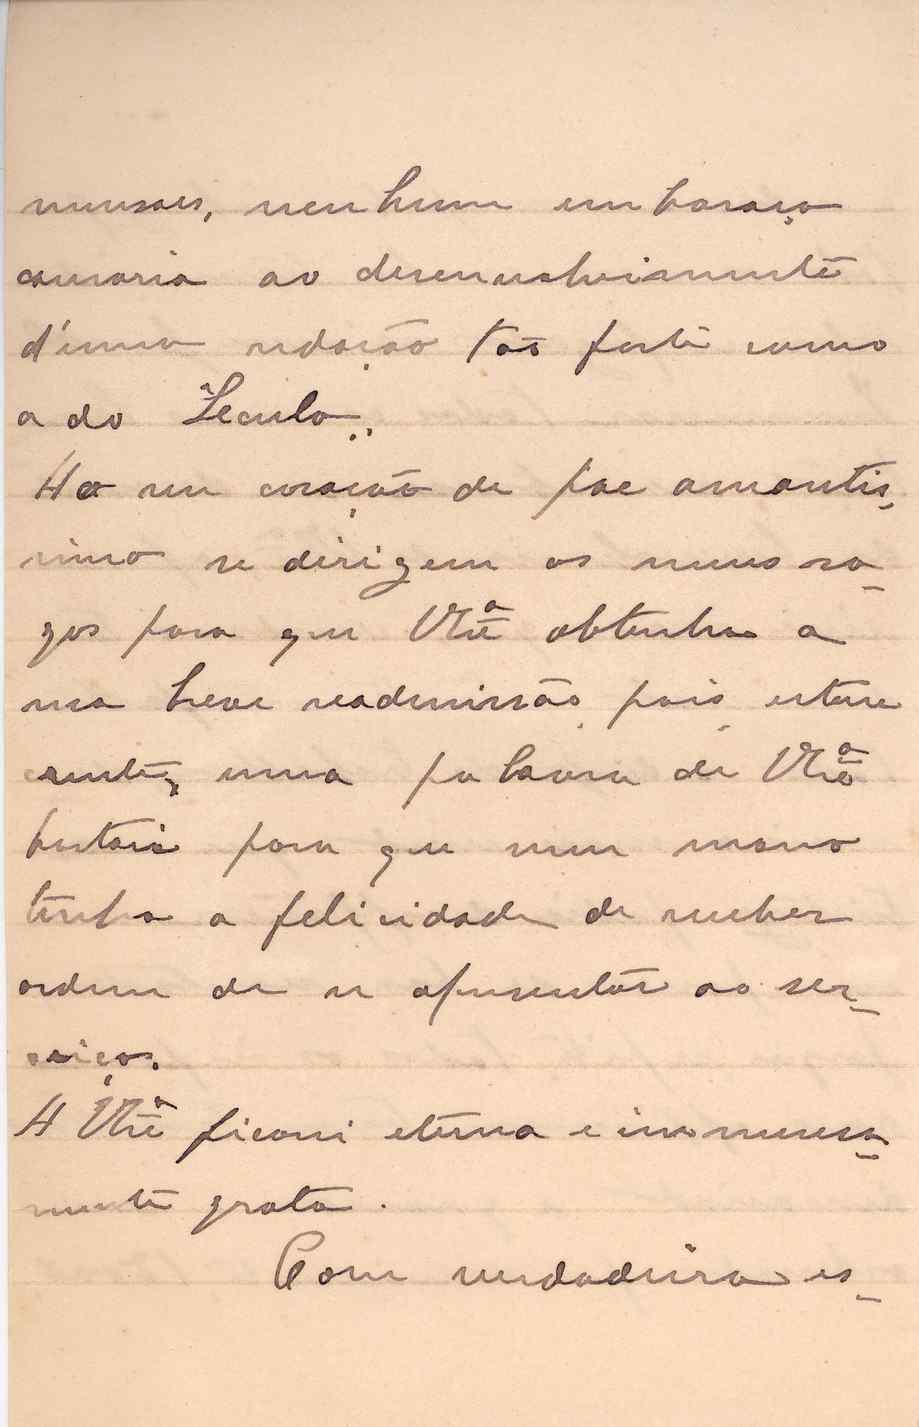 mensaes, nenhum embaraço
causaria ao desenvolvimento
d'uma redação tão forte como
a do "Seculo".
Ao seu coração de pae amantis-
simo se dirigem os meus ro-
gos para que V. Ex.ª obtenha a
sua breve readmissão, pois, estou
certa, uma palavra de V. Ex.ª
bastará para que meu mano
tenha a felicidade de receber
ordem de se apresentar ao ser-
viço.
A V. Ex.ª ficarei eterna e immensa-
mente grata.
Com verdadeira es-